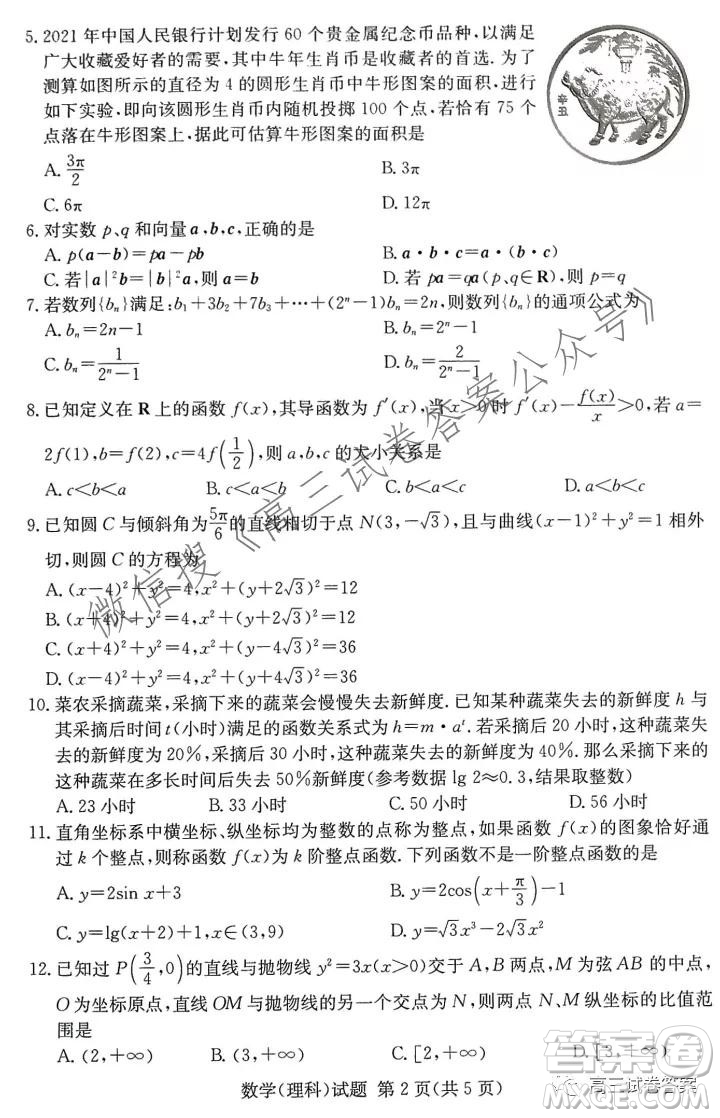 5. 2021 年中国人民银行计划发行 60 个贵金属纪念币品种,以满足
广大收藏爱好者的需要,其中牛年生肖币是收藏者的首选.为了
测算如图所示的直径为 4 的圆形生肖币中牛形图案的面积,进行
如下实验,即向该圆形生肖币内随机投掷 100 个点,若恰有 75 个
点落在牛形图案上,据此可估算牛形图案的面积是
辛丑
A. 3π/2 B. 3π
C. 6π D. 12π
6. 对实数 p、q 和向量 a,b,c,正确的是
A. p(a−b)=pa−pb B. a·b·c=a·(b·c)
C. 若|a|²b=|b|²a,则 a=b D. 若 pa=qa(p、q∈R),则 p=q
7. 若数列{bₙ}满足:b₁+3b₂+7b₃+…+(2ⁿ−1)bₙ=2n,则数列{bₙ}的通项公式为
A. bₙ=2n−1 B. bₙ=
C. bₙ=1/(2ⁿ−1) D. bₙ=2/(2ⁿ−1)
8. 已知定义在 R 上的函数 f(x),其导函数为 f′(x),当 x>0 时 f′(x)−f(x)/x>0,若 a=
2f(1),b=f(2),c=4f(1/2),则 a、b、c 的大小关系是
A. c<b<a B. c<a<b C. b<a<c D. a<b<c
9. 已知圆 C 与倾斜角为 5π/6 的直线相切于点 N(3,−√3),且与曲线(x−1)²+y²=1 相外
切,则圆 C 的方程为
A. (x−4)²+y²=4,x²+(y+2√3)²=12
B. (x+4)²+y²=4,x²+(y+2√3)²=12
C. (x+4)²+y²=4,x²+(y−2√3)²=36
D. (x−4)²+y²=4,x²+(y+4√3)²=36
10. 菜农采摘蔬菜,采摘下来的蔬菜会慢慢失去新鲜度.已知某种蔬菜失去的新鲜度 h 与
其采摘后时间 t(小时)满足的函数关系式为 h=m·aᵗ.若采摘后 20 小时,这种蔬菜失
去的新鲜度为 20%,采摘后 30 小时,这种蔬菜失去的新鲜度为 40%.那么采摘下来的
这种蔬菜在多长时间后失去 50%新鲜度(参考数据 lg 2≈0.3,结果取整数)
A. 23 小时 B. 33 小时 C. 50 小时 D. 56 小时
11. 直角坐标系中横坐标、纵坐标均为整数的点称为整点,如果函数 f(x)的图象恰好通
过 k 个整点,则称函数 f(x)为 k 阶整点函数.下列函数不是一阶整点函数的是
A. y=2sin x+3 B. y=2cos(x+π/3)−1
C. y=lg(x+2)+1,x∈(3,9) D. y=√3x³−2√3x
12. 已知过 P(3/4,0)的直线与抛物线 y²=3x(x>0)交于 A,B 两点,M 为弦 AB 的中点,
O 为坐标原点,直线 OM 与抛物线的另一个交点为 N,则两点 N、M 纵坐标的比值范
围是
A. (2,+∞) B. (3,+∞) C. [2,+∞) D. [3,+∞)
数学(理科)试题 第 2 页(共 5 页)
微信搜《高三试卷答案公众号》
答案圈
高三试卷答案